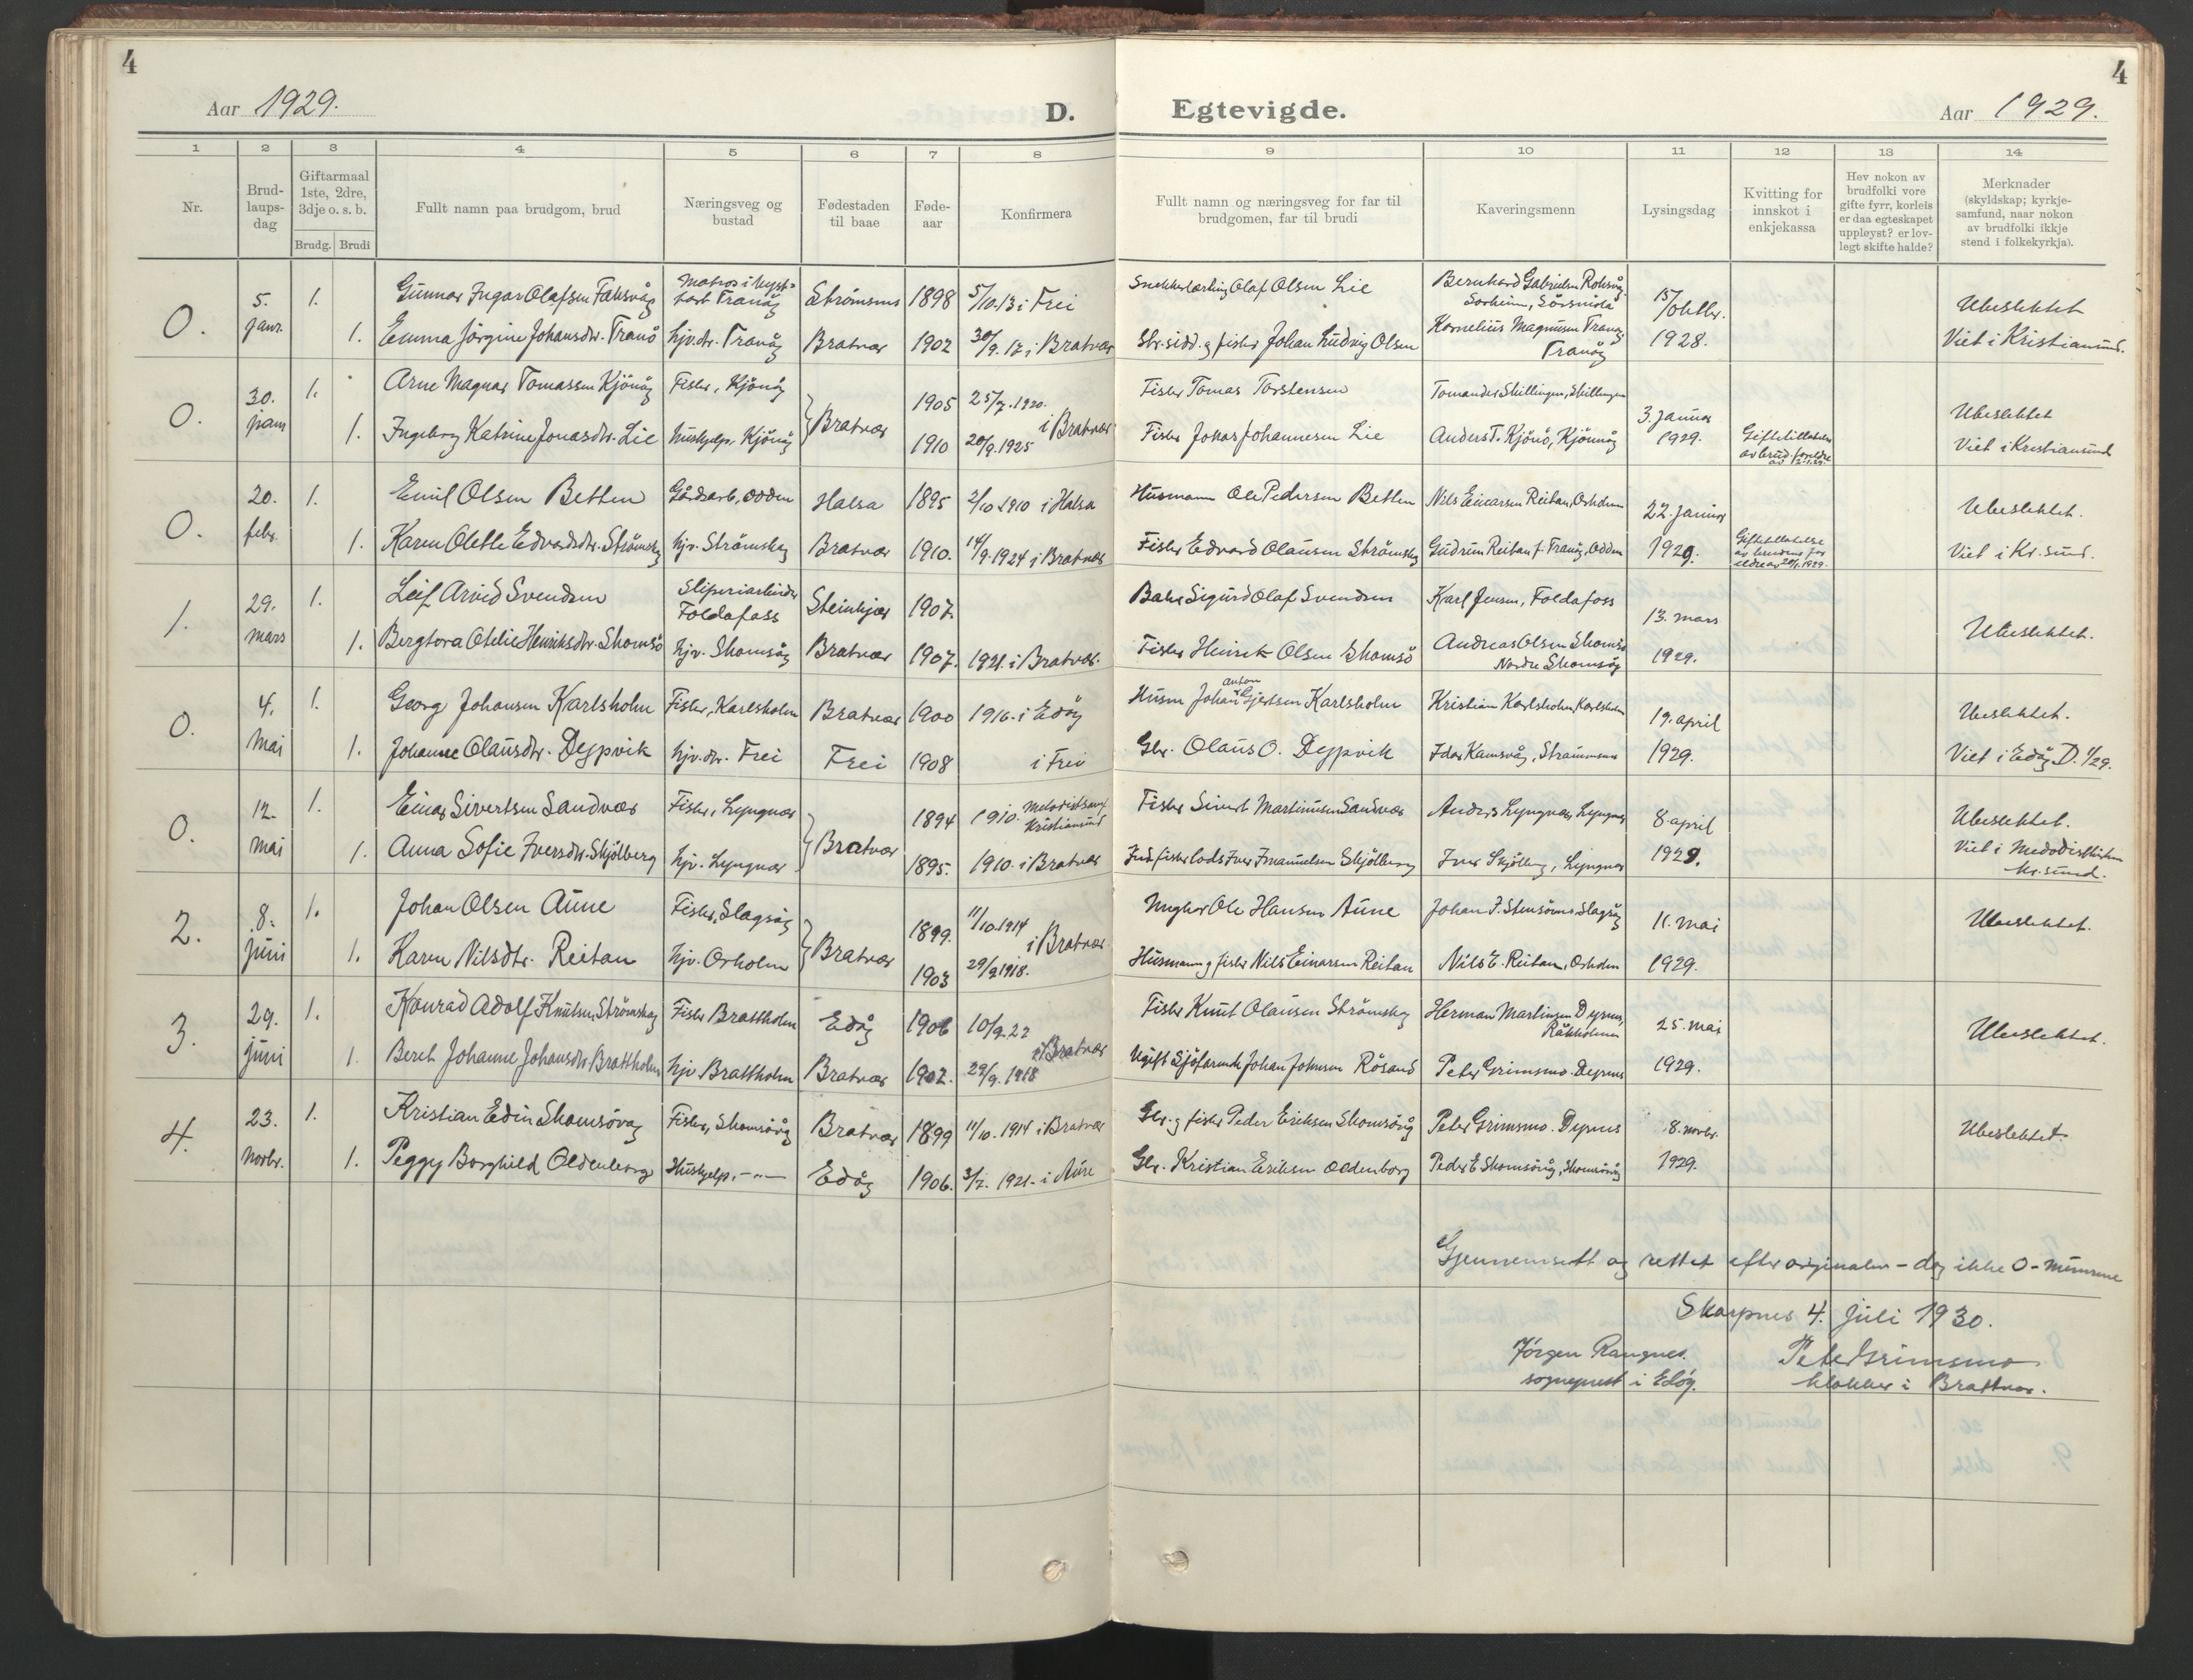 4
4
Aar 1929.
D.
Egtevigde.
Aar 1929.
1 2 3 4 5 6 7 8 9 10 11 12 13 14
Nr.
Brud-
laups-
dag
Giftarmaal
1ste, 2dre,
3dje o. s. b.
Brudg. Brudi
Fullt namn paa brudgom, brud
Næringsveg og
bustad
Fødestaden
til baae
Føde-
aar
Konfirmera
Fullt namn og næringsveg for far til
brudgomen, far til brudi
Kaveringsmenn
Lysingsdag
Kvitting for
innskot i
enkjekassa
Hev nokon av
brudfolki vore
gifte fyrr, korleis
er daa egteskapet
uppløyst? er lov-
legt skifte halde?
Merknader
(skyldskap; kyrkje-
samfund, naar nokon
av brudfolki ikkje
stend i folkekyrkja).
O. 5. janr. 1. Gunnar Ingar Olafsen Falksvåg Matros i kyst-
fart Tranøy Strømsnes 1898 5/10.13 i Frei Snekkerlærling Olaf Olsen Lie Bernhard Gabrielsen
15/oktbr. Ubeslektet
1. Emma Jørgine Johansdtr. Tranø hjv.dtr. Tranøy Bratvær 1902 30/9.17 i Bratvær Gbr. sidd. og fisker Johan Ludvig Olsen Kornelius Magnusen Tranøy
Tranøy 1928. Viet i Kristiansund.
O. 30. jan 1. Arne Magnar Tomassen Kjönöy Fisker, Kjönöy Bratvær 1905 25/7.1920. i Bratvær Fisker Tomas Torstensen Tomander Skillingen, Skillingen 3. januar Ubeslektet
1. Ingeborg Katrine Jonasdtr. Lie hushjelp, Kjönöy 1910 20/9.1925 Fisker Jonas Johannesen Lie Anders T. Kjönö, Kjönnöy 1929. Giftetillatelse
av brud. foreldre
Viet i Kristiansund
O. 20. febr. 1. Emil Olsen Betten Gårdsarb, Odden Halsa 1895 2/10 1910 i Halsa Husmann Ole Pedersen Betten Nils Einarsen Reitan, Orholmen 22. januar Ubeslektet.
1. Karen Olette Edvardsdtr. Strømsky hjv. Strømsky Bratvær 1910. 14/9.1924 i Bratvær Fisker Edvard Olausen Strømsky Gudrun Reitan f. Tranöy, Odden 1929. Giftetillatelse
av brudens for
eldre av 20/1.1929. Viet i Kr. sund.
1. 29. mars 1. Leif Arvid Svendsen Sliperiarbeider
Foldafoss Steinkjær 1907. Baker Sigurd Olaf Svendsen Karl Jensen, Foldafoss 13. mars Ubeslektet.
1. Bergtora Otelie Henriksdtr. Skomsö hjv. Skomsöy Bratvær 1907. 1921. i Bratvær. Fisker Heinrik Olsen Skomsö Andreas Olsen Skomsö
Nordre Skomsöy 1929.
O. 4. mai 1. Georg Johansen Karlsholm Fisker, Karlsholm Bratvær 1900 1916. i Edøy Husm Johan Anton Gjertsen Karlsholm Kristian Karlsholm, Karlsholm 19. april Ubeslektet.
1. Johanne Olausdtr. Deypvik hjv.dtr. Frei Frei 1908 i Frei Gbr. Olaus O. Deypvik Idar Kamsvåg, Straumsnes 1929. Viet i Edøy D. 1/29.
O. 12. mai 1. Einar Sivertsen Sandvær Fisker, Lyngvær Bratvær 1894 1910. Metodistsamf.
Kristiansund Fisker Sivert Martinusen Sandvær Anders Lyngvær, Lyngvær 8. april Ubeslektet.
1. Anna Sofie Iversdtr. Skjölberg hjv. Lyngvær 1895. 1910. i Bratvær Ind. fisker lods Iver Imanuelsen Skjölberg Iver Skjölberg, Lyngvær 1929. Viet i Metodistkirken
Kr. sund.
2. 8. juni 1. Johan Olsen Aune Fisker, Slagsöy Bratvær 1899. 11/10.1914 i Bratvær Ungkar Ole Hansen Aune Johan J. Stensönes Slagsöy 11. mai Ubeslektet.
1. Karen Nilsdtr. Reitan hjv. Orholm 1903 29/9 1918. Husmann og fisker Nils Einarsen Reitan Nils E. Reitan, Orholm 1929.
3. 29. juni 1. Konrad Adolf Knutsen Strømsky Fisker Brattholm Edøy 1906 10/9.22 i Bratvær Fisker Knut Olausen Strømsky Herman Martinsen Dyrnes,
Råkholmen 25. mai Ubeslektet.
1. Beret Johanne Johansdtr. Brattholm hjv. Brattholm Bratvær 1902. 29/9. 1918 Ugift Sjöfarende Johan Johnsen Rösand Peter Grimsmo. Dyrnes 1929.
4. 23. novbr. 1. Kristian Edin Skomsöray Fisker, Skomsöröy Bratvær 1899 11/10. 1914 i Bratvær Gbr. og fisker Peder Eriksen Skomsöröy Peter Grimsmo. Dyrnes 8. novbr. Ubeslektet.
1. Peggy Borghild Oldenborg Hushjelp. -"- Edøy 1906. 3/7. 1921. i Aure Gbr. Kristian Eriksen Oldenborg Peder E Skomsöröy, Skomsöröy 1929.
Gjennemsett og rettet efter originalen - dog ikke O-numrene
Skarpnes 4. juli 1930.
Jørgen Rangnes. Peter Grimsmo
sogneprest i Edøy. klokker i Brattvær.